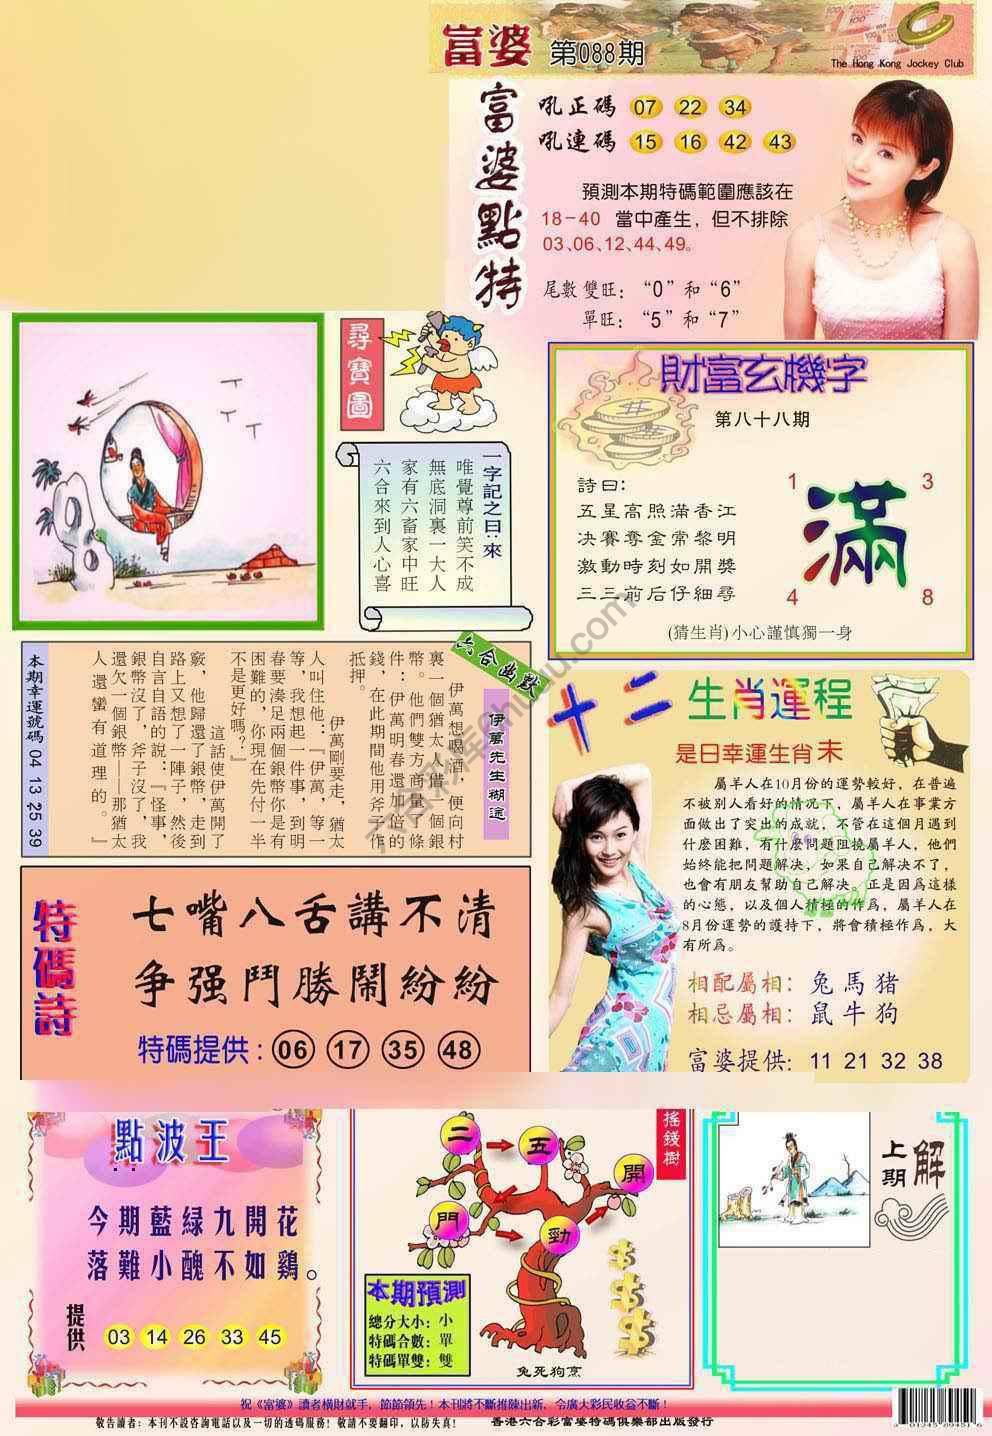 富婆 第088期
The Hong Kong Jockey Club
富婆點特
吼正碼 07 22 34
吼連碼 15 16 42 43
預測本期特碼範圍應該在
18-40 當中產生，但不排除
03、06、12、44、49。
尾數雙旺：“0”和“6”
單旺：“5”和“7”
尋寶圖
一字記之曰：來
唯覺尊前笑不成
無底洞裏一大人
家有六畜家中旺
六合來到人心喜
財富玄機字
第八十八期
詩曰：
五星高照滿香江
決賽奪金常黎明
激動時刻如開獎
三三前后仔細尋
1 3
滿
4 8
(猜生肖)小心謹慎獨一身
六合幽默
伊萬先生糊塗
伊萬想喝酒，便向村
裏一個猶太人借一個銀
幣。他們雙方商量的條
件：伊萬明春還加倍的
錢，在此期間他用斧子作
抵押。
伊萬剛要走，猶太
人叫住他：『伊萬，等一
等，我想起一件事，到明
春要湊足兩個銀幣你是有
困難的，你現在先付一半
不是更好嗎？』
這話使伊萬開了
竅，他歸還了銀幣，走到
路上又想了一陣子，然後
自言自語的說：『怪事，
銀幣沒了，斧子沒了，我
還欠一個銀幣——那猶太
人還蠻有道理的。』
本期幸運號碼 04 13 25 39
十二生肖運程
是日幸運生肖未
屬羊人在10月份的運勢較好，在普遍
不被别人看好的情况下，屬羊人在事業方
面做出了突出的成就，不管在這個月遇到
什麽困難，有什麽問題阻撓屬羊人，他們
始終能把問題解决，如果自己解决不了，
也會有朋友幫助自己解决。正是因爲這樣
的心態，以及個人積極的作爲，屬羊人在
8月份運勢的護持下，將會積極作爲，大
有所爲。
相配屬相：兔馬猪
相忌屬相：鼠牛狗
富婆提供：11 21 32 38
特碼詩
七嘴八舌講不清
争强鬥勝鬧紛紛
特碼提供：06 17 35 48
點波王
今期藍綠九開花
落難小醜不如鷄。
提供 03 14 26 33 45
搖錢樹
二 五 開
門 勁
本期預測
總分大小：小
特碼合數：單
特碼單雙：雙
兔死狗烹
上期解
祝《富婆》讀者横財就手，節節領先！本刊將不斷推陳出新，令廣大彩民收益不斷！
敬告讀者：本刊不設咨詢電話以及一切的透碼服務！敬請不要翻印，以防失真！
香港六合彩富婆特碼俱樂部出版發行